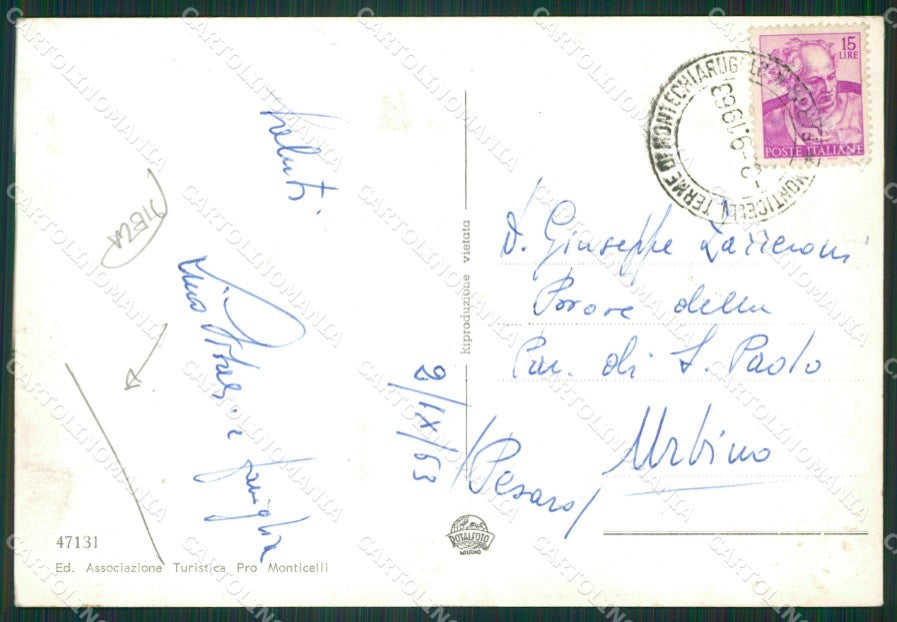 Saluti
PIEGA
e famiglia
2/IX/63
47131
Ed. Associazione Turistica Pro Monticelli
Riproduzione vietata
ROTALFOTO
MILANO
15
LIRE
POSTE ITALIANE
MONTICELLI TERME DI MONTECHIARUGOLO
-2.9.1963
D. Giuseppe Zazzeroni
della
Par. di S. Paolo
Urbino
(Pesaro)
CARTOLINOMANIA